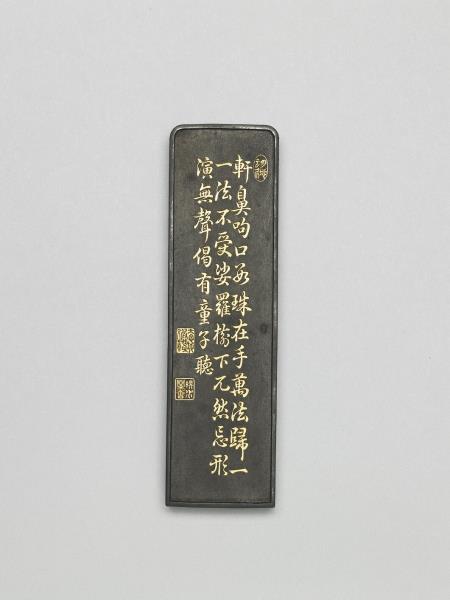 軒鼻呴口數珠在手萬法歸一
一法不受娑羅樹下兀然忘形
演無聲偈有童子聽